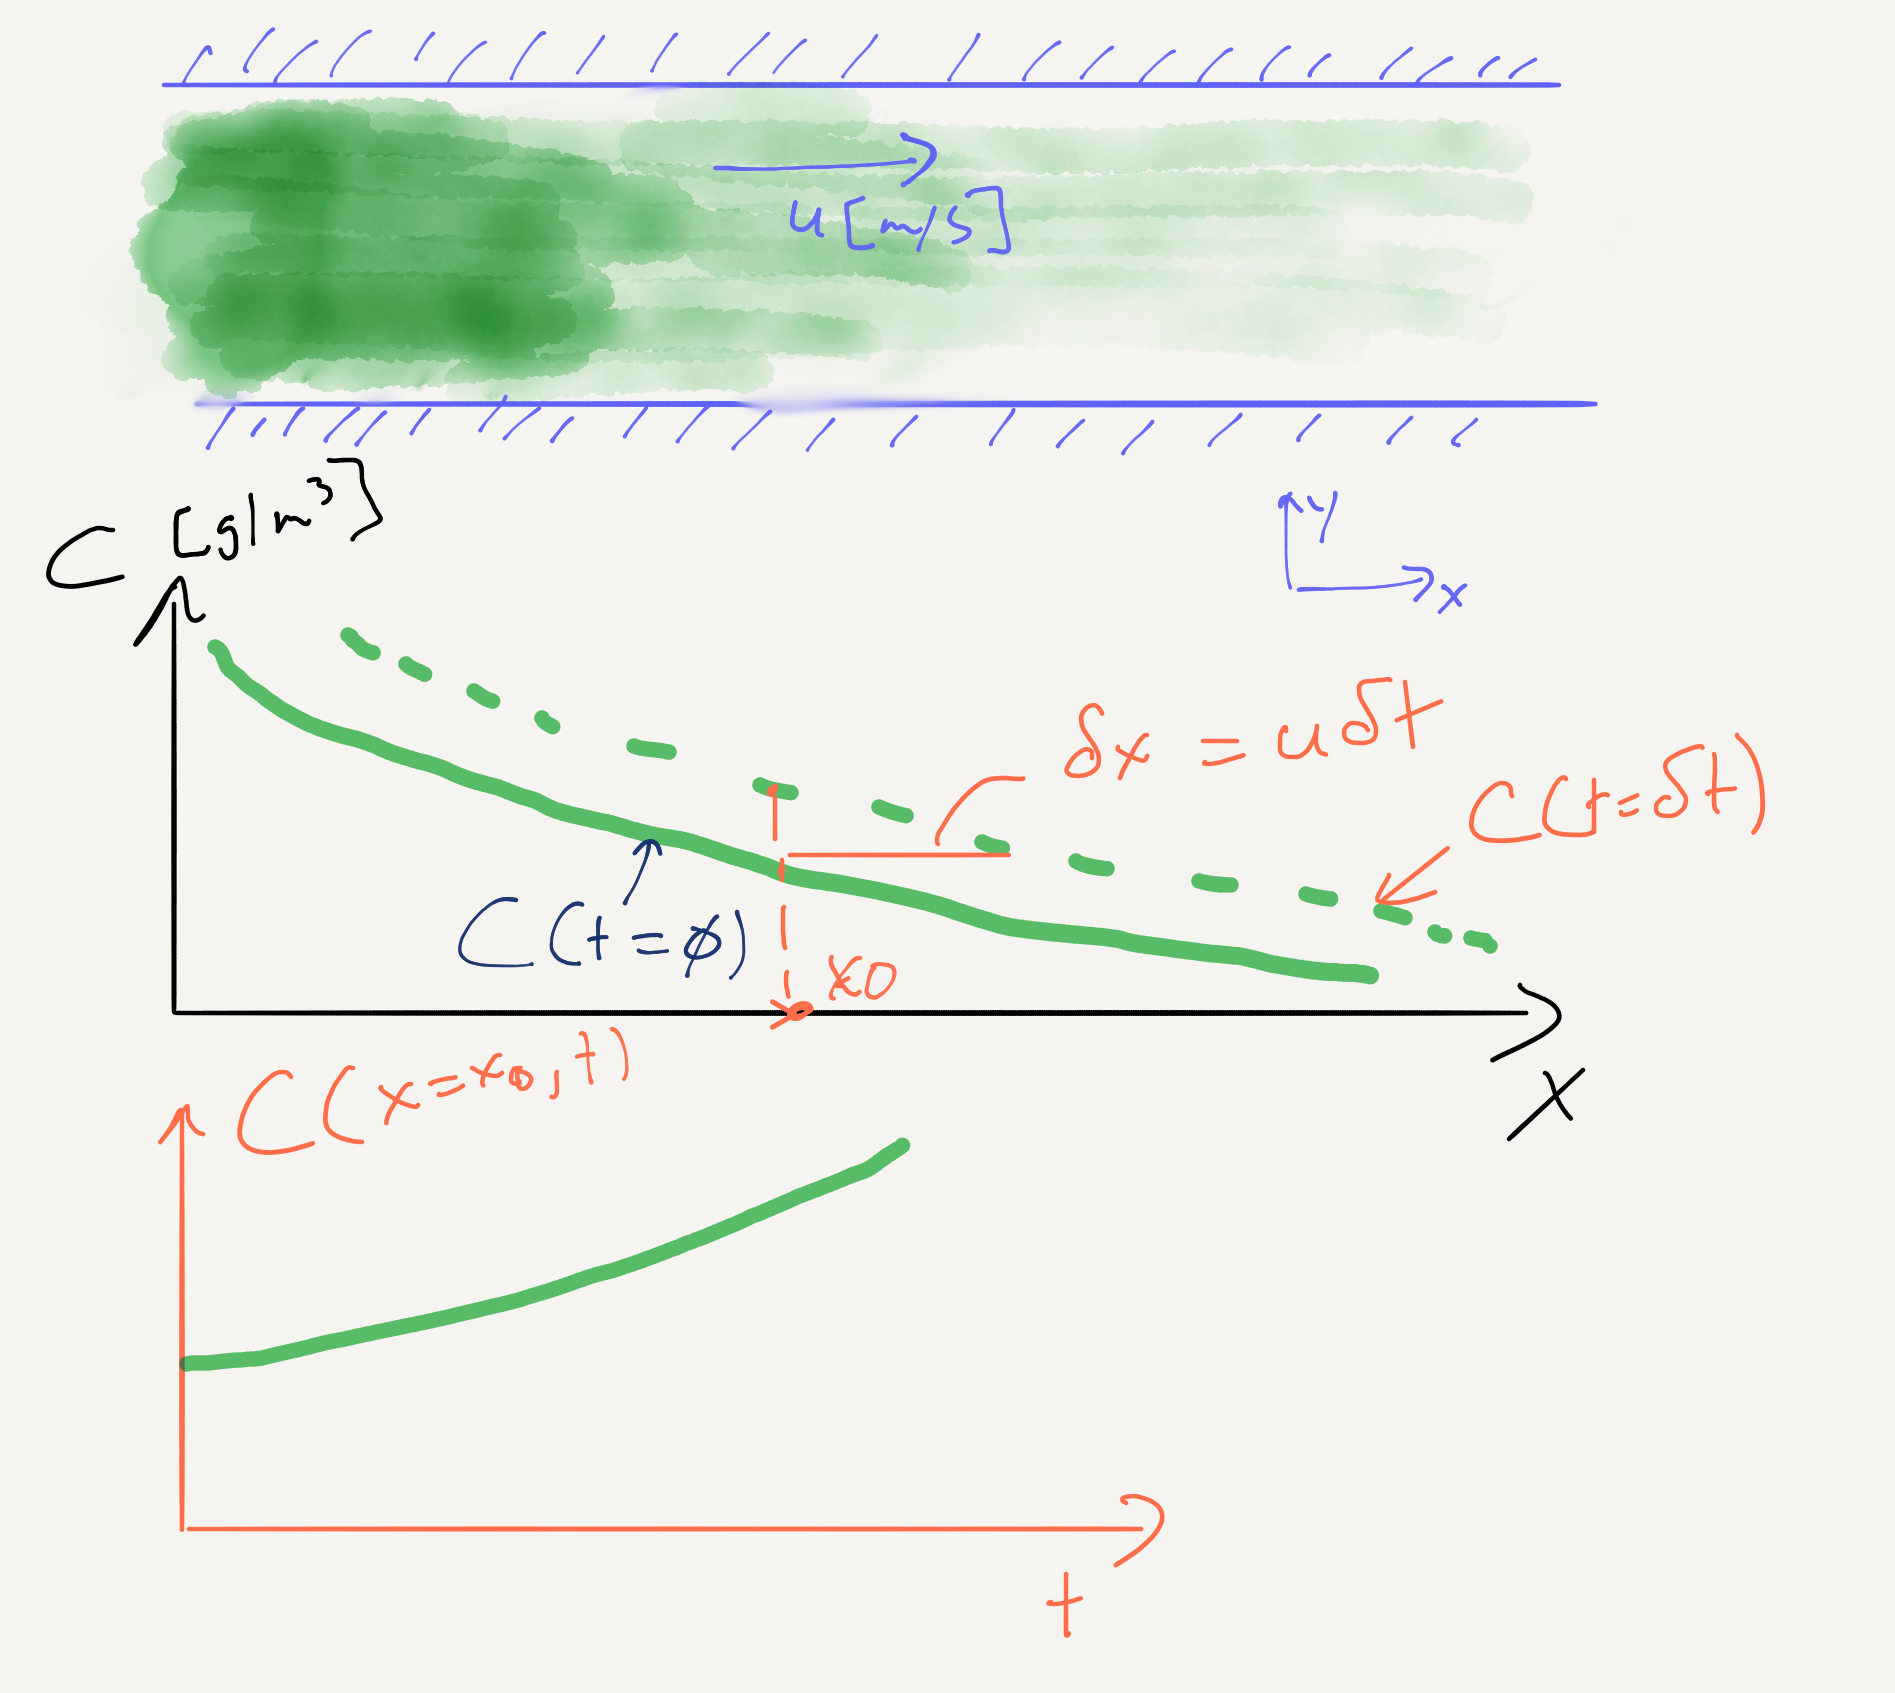 u [m/s]
C [g/m³]
y
x
δx = uδt
C(t=δt)
C(t=ø)
x0
x
C(x=x₀,t)
t